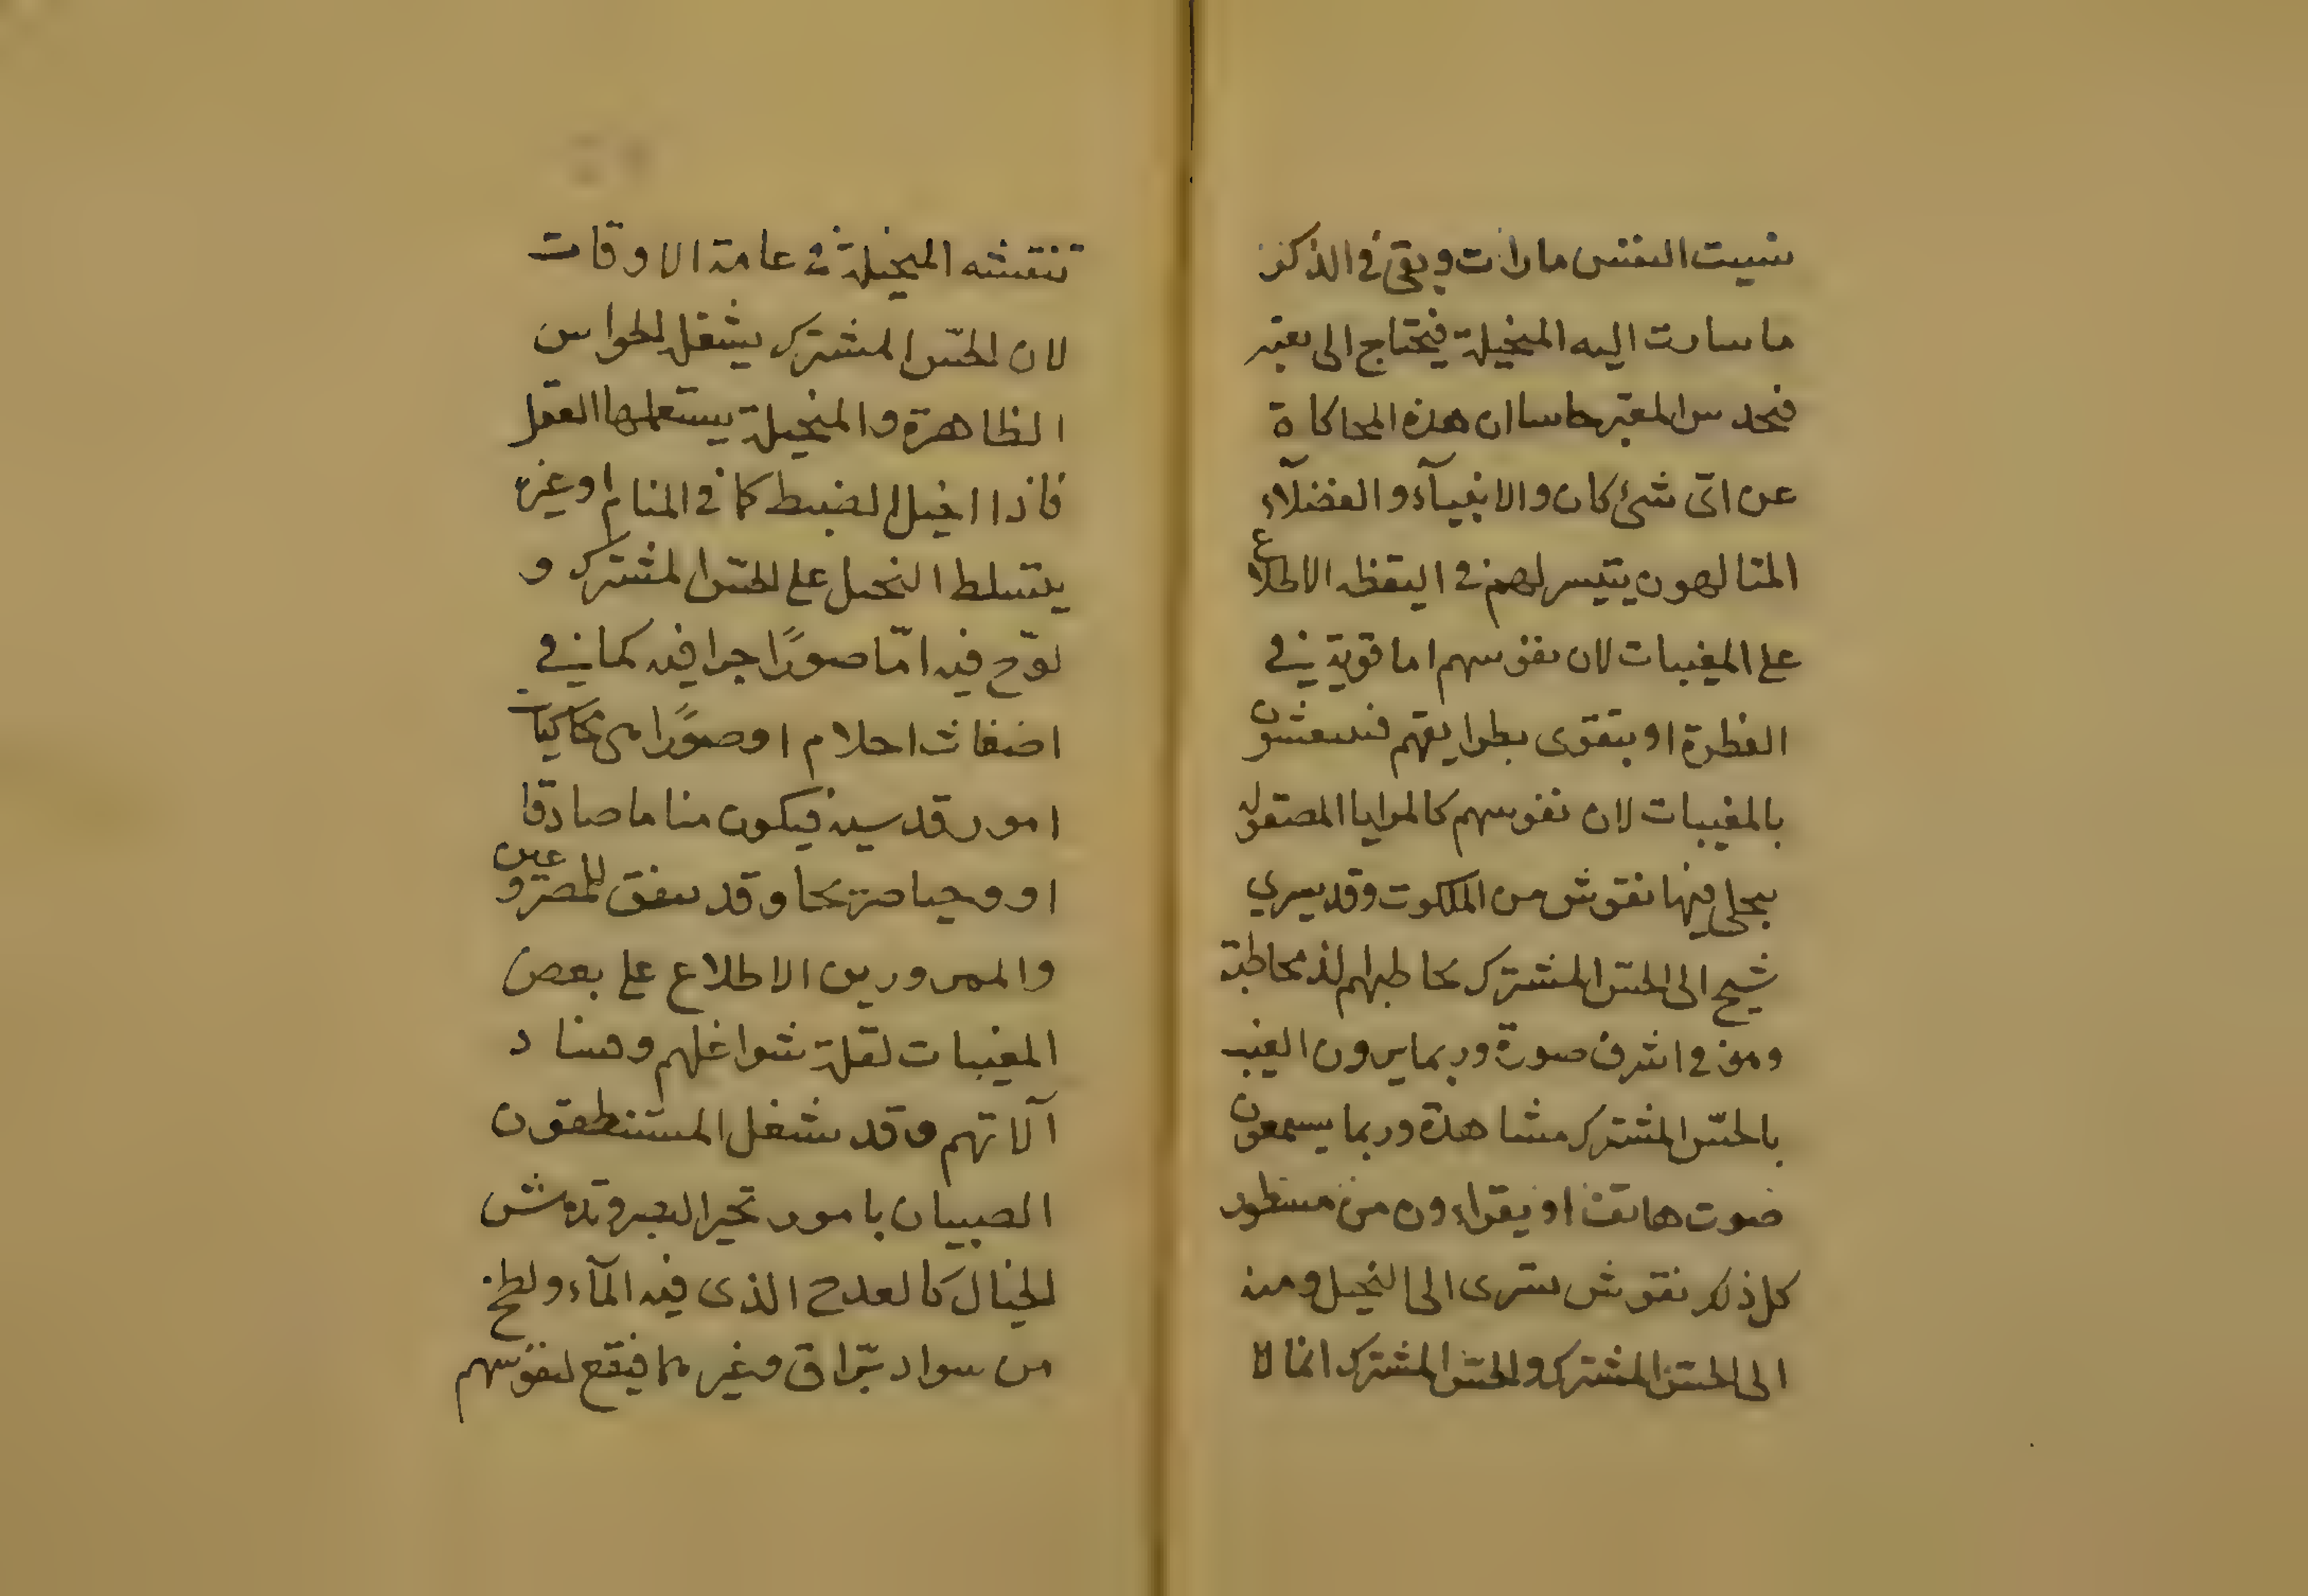 نسيت النفس ما رات وبقى فى الذكر
ما سارت اليه المتخيلة فيحتاج الى تعبير
فيحدس المعبر حاسا ان هذه المحاكاة
عن اى شئ كان والانبيآء والفضلآء
المتالهون يتيسر لهم فى اليقظه الاطلاع
على المغيبات لان نفوسهم اما قوية فى
الفطرة او بتقوى بطرايقهم فينتقشون
بالمغيبات لان نفوسهم كالمرايا المصقوله
يتجلى فيها نقوش من الملكوت وقد يسري
شبح الى الحسّ المشترك يخاطبهم الذ مخاطبة
وهو فى اشرف صورة وربما يرون الغيب
بالحسّ المشترك مشاهدة وربما يسمعون
صوت هاتف او يقراءون من مسطور
كل ذلك نقوش تسرى الى التخيل ومنه
الى الحسّ المشترك والحسّ المشترك انما لا
تنتقشه المتخيلة فى عامة الاوقات
لان الحسّ المشترك يشغله الحواس
الظاهرة والمتخيلة يستعملها العقل
فاذا اختل الضبط كما فى المنام او غيره
يتسلط التخيل على الحسّ المشترك و
لوّح فيه امّا صورًا جرافيه كما فى
اضغاث احلام او صورًا هى محاكيات
امور قدسية فيكون مناما صادقا
او وحيا صريحا وقد يتفق للمصروعين
والممرورين الاطلاع على بعض
المغيبات لقلة شواغلهم وفساد
آلاتهم وقد يشغل المستنطقون
الصبيان بامور تحير البصر وتدهش
الخيال كالقدح الذى فيه المآء ولطخ
من سواد برّاق وغيرهما فيقع لنفوسهم